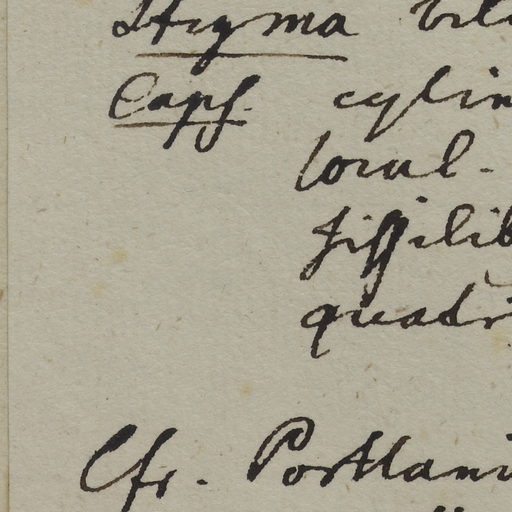 Stigma bil
Caps. cylin
locul-
fissilib
quadri
Cfr. Portlandi